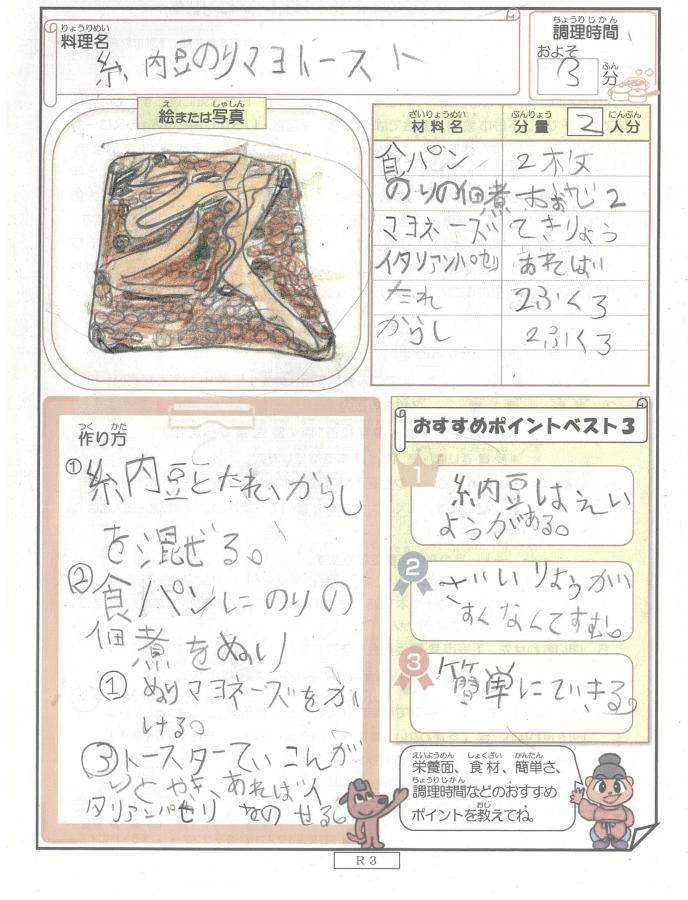 りょうりめい
料理名
糸内豆のりマヨトースト
ちょうりじかん
調理時間
およそ
3
ふん
分
え しゃしん
絵または写真
ざいりょうめい ぶんりょう にんぶん
材料名 分量 2 人分
食パン 2枚
のりの佃煮 おおさじ2
マヨネーズ てきりょう
イタリアンパセリ あれば
たれ 2ふくろ
からし 2ふくろ
つく かた
作り方
①糸内豆とたれ、からし
を混ぜる。
②食パンにのりの
佃煮をぬり
① ぬりマヨネーズをか
ける。
③トースターで、こんが
りとやき、あればイ
タリアンパセリ なのせる。
おすすめポイントベスト3
1
納豆はえい
ようがある。
2
ざいりょうが
すくなくてすむ。
3
簡単にできる。
えいようめん しょくざい かんたん
栄養面、食材、簡単さ、
ちょうりじかん
調理時間などのおすすめ
おし
ポイントを教えてね。
R3